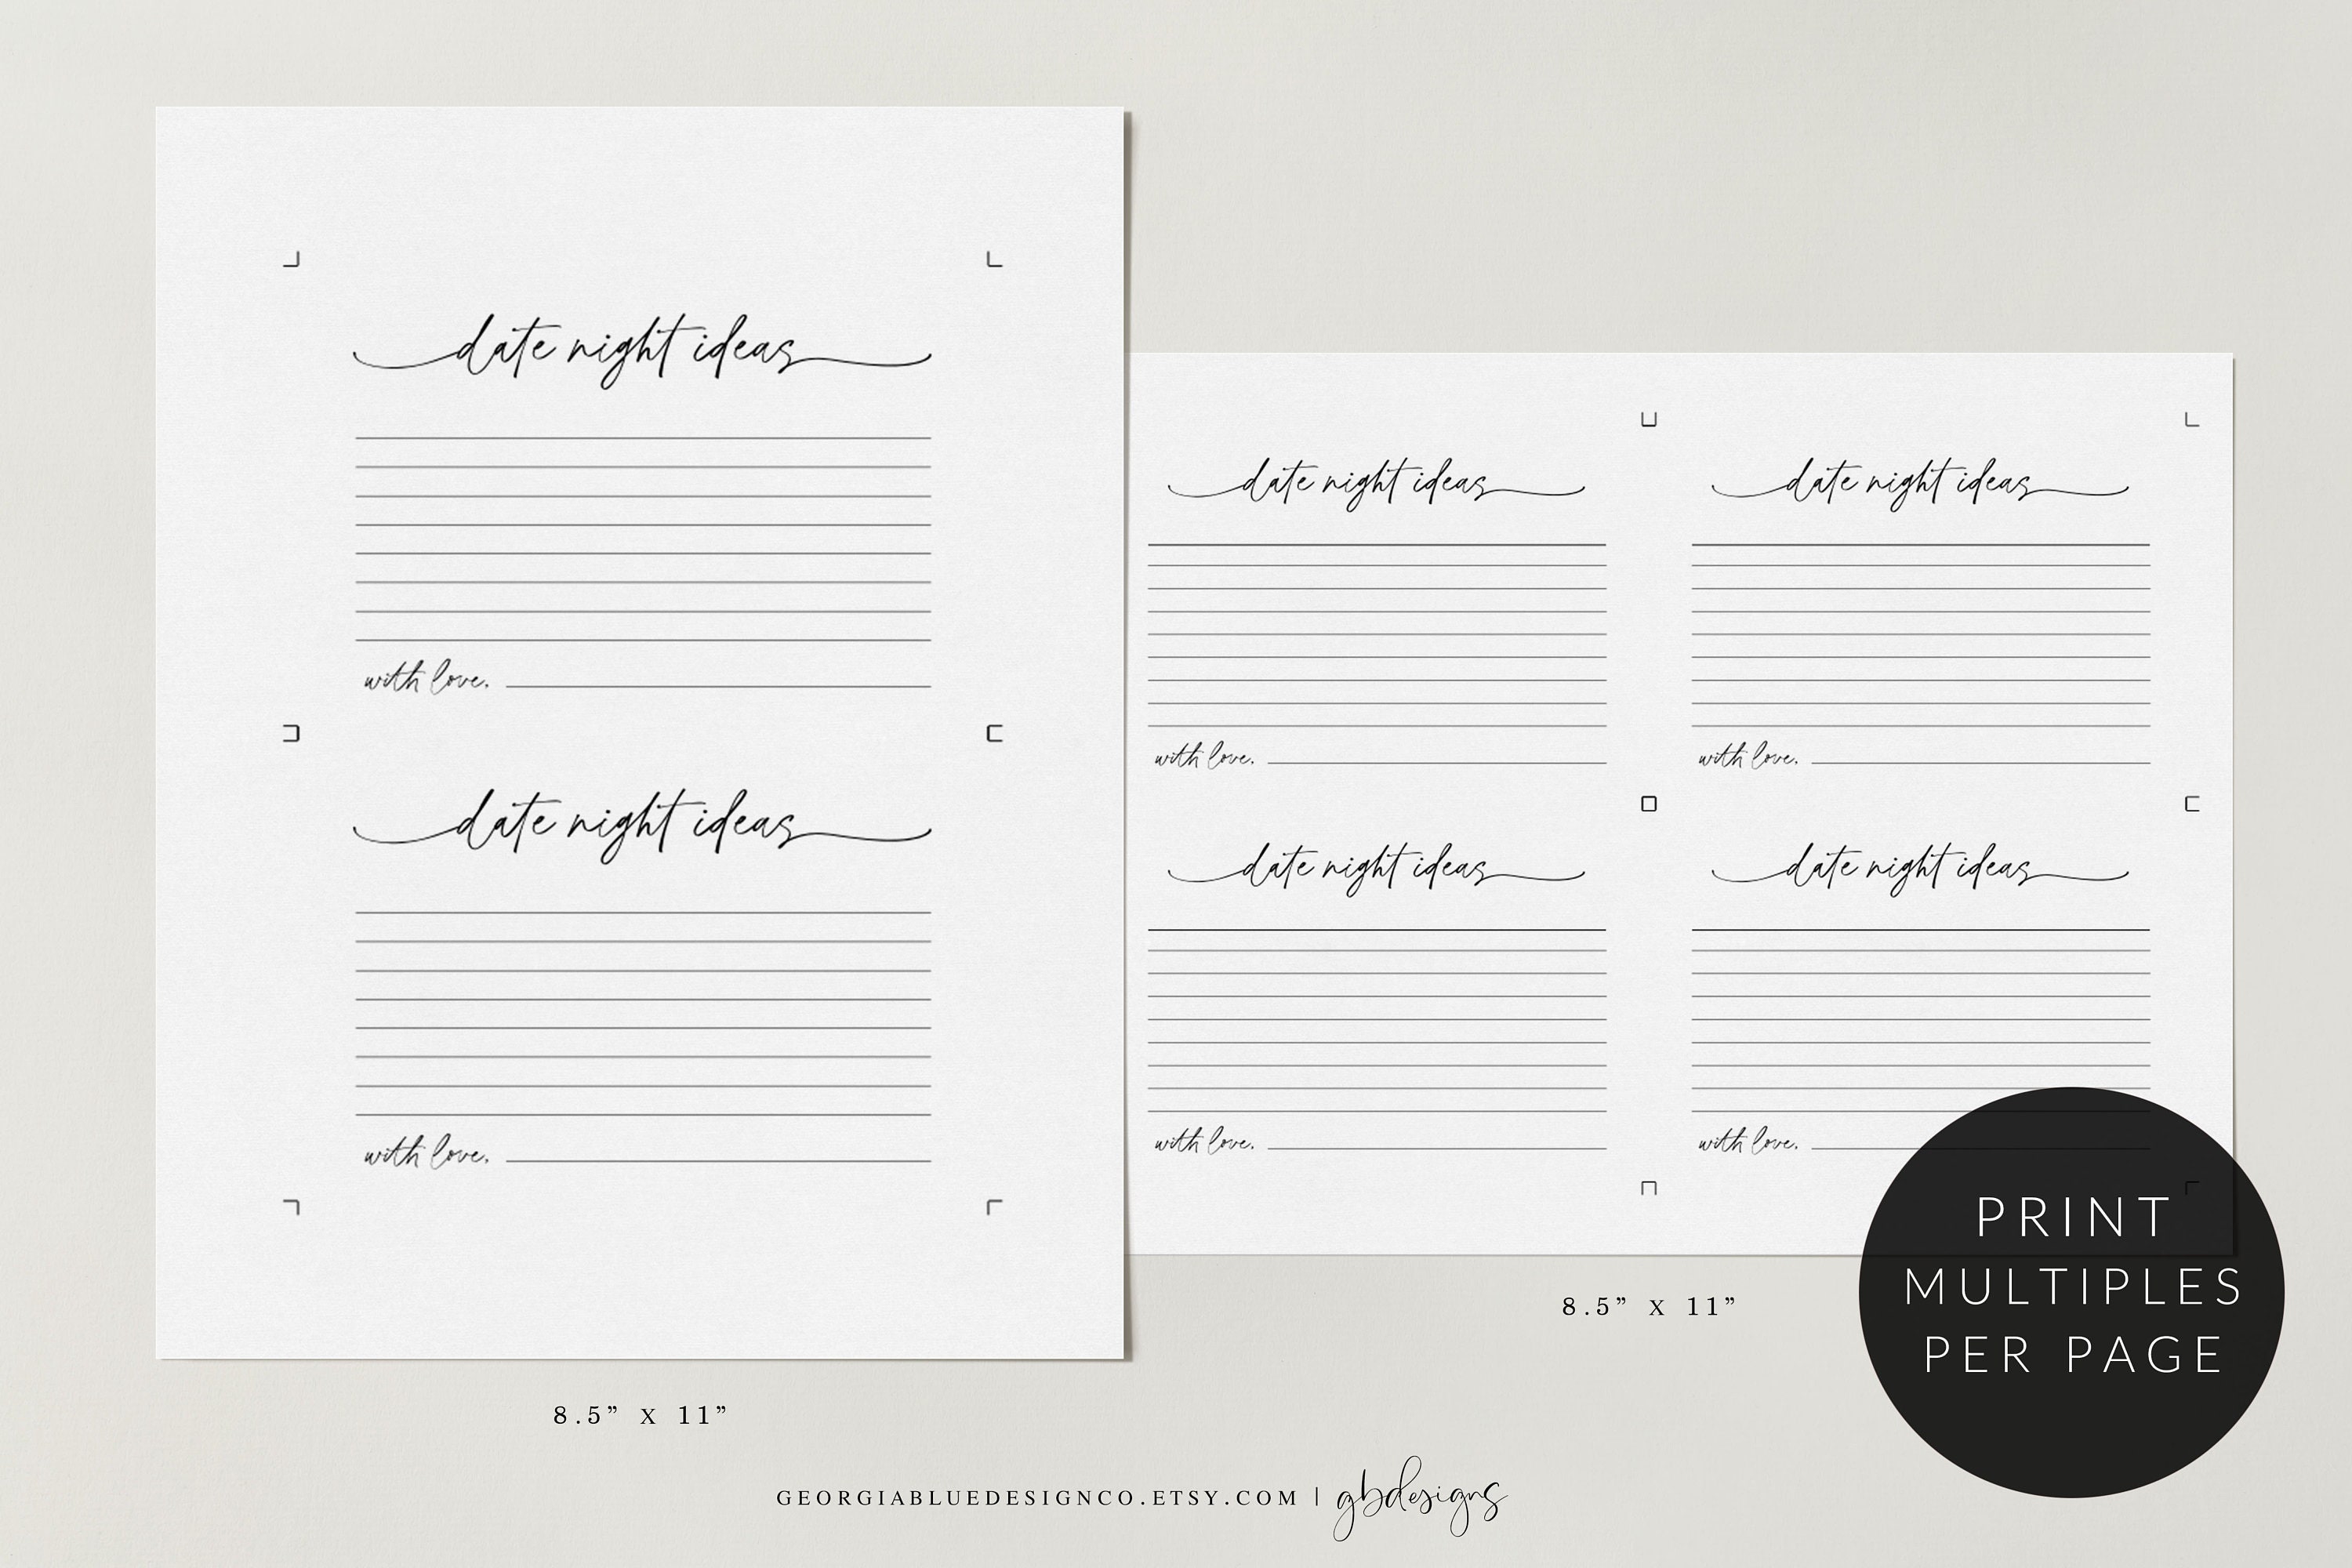 date night ideas
with love,
date night ideas
with love,
date night ideas
date night ideas
with love,
with love,
date night ideas
date night ideas
with love,
with love,
PRINT
MULTIPLES
PER PAGE
8.5” X 11”
8.5” X 11”
GEORGIABLUEDESIGNCO.ETSY.COM | gbdesigns